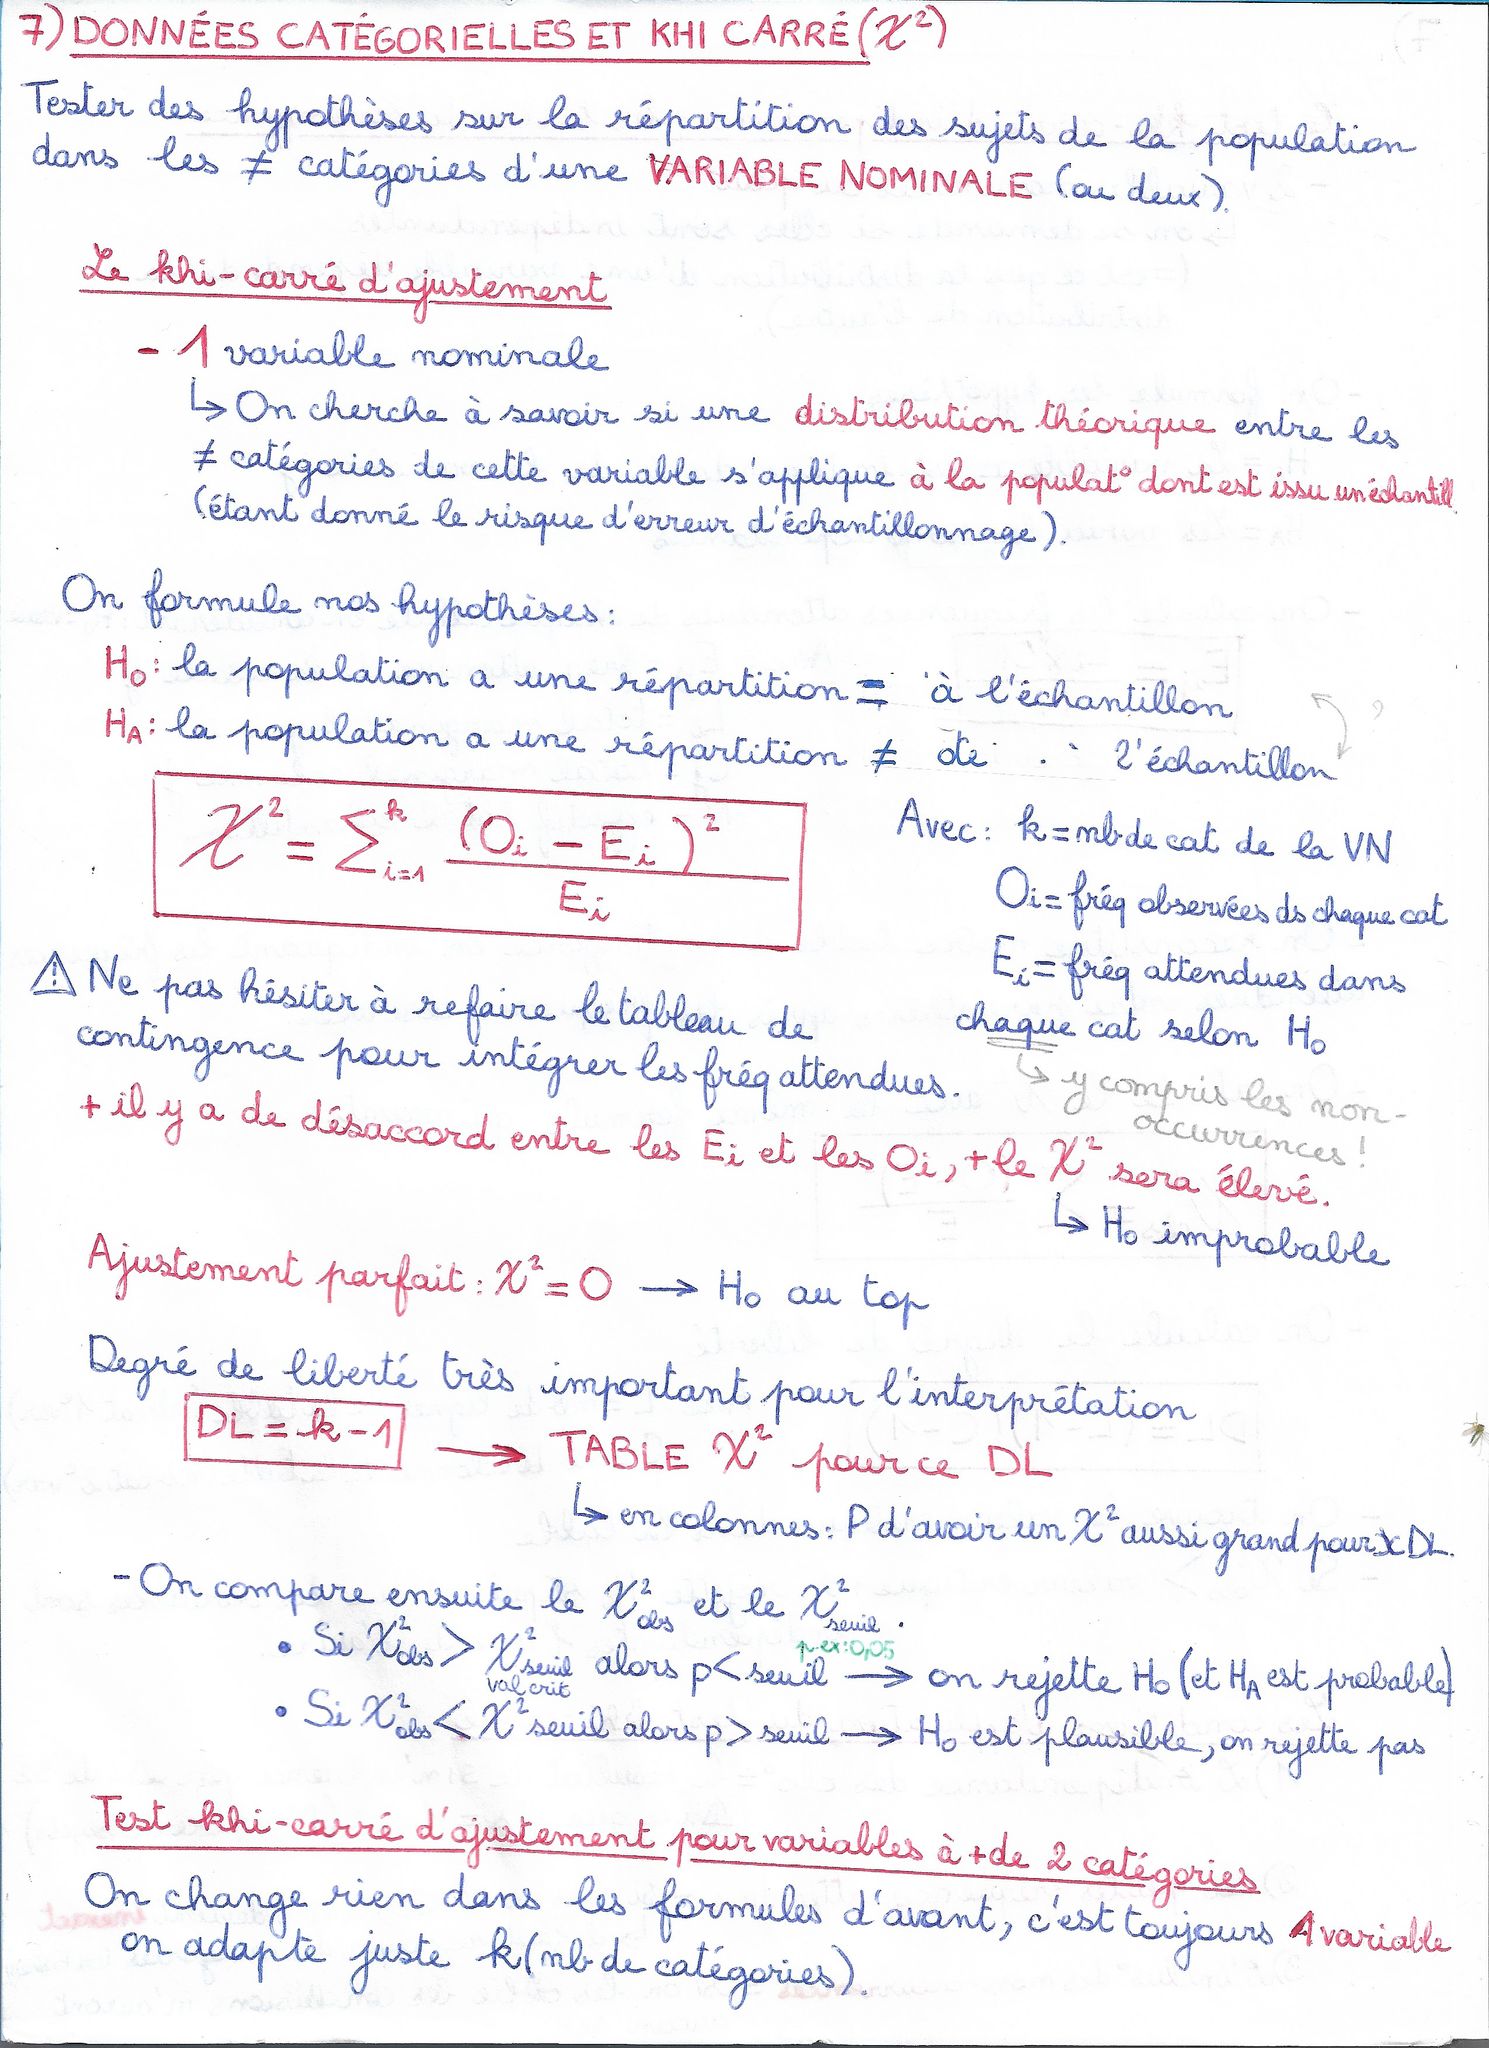 7) DONNÉES CATÉGORIELLES ET KHI CARRÉ (χ²)
Tester des hypothèses sur la répartition des sujets de la population
dans les ≠ catégories d'une VARIABLE NOMINALE (ou deux).
Le khi-carré d'ajustement
- 1 variable nominale
↳ On cherche à savoir si une distribution théorique entre les
≠ catégories de cette variable s'applique à la populat° dont est issu un échantill.
(étant donné le risque d'erreur d'échantillonnage).
On formule nos hypothèses :
H₀ : la population a une répartition = à l'échantillon
?
H_A : la population a une répartition ≠ de l'échantillon
χ² = Σ_{i=1}^{k} (O_i - E_i)² / E_i
Avec : k = nb de cat de la VN
O_i = fréq observées ds chaque cat
E_i = fréq attendues dans
chaque cat selon H₀
↳ y compris les non-
occurrences !
⚠ Ne pas hésiter à refaire le tableau de
contingence pour intégrer les fréq attendues.
+ il y a de désaccord entre les E_i et les O_i, + le χ² sera élevé.
↳ H₀ improbable
Ajustement parfait : χ² = 0 → H₀ au top
Degré de liberté très important pour l'interprétation
DL = k - 1 → TABLE χ² pour ce DL
↳ en colonnes : P d'avoir un χ² aussi grand pour x DL.
- On compare ensuite le χ²_obs et le χ²_seuil.
• Si χ²_obs > χ²_seuil alors p < seuil → on rejette H₀ (et H_A est probable)
val crit
p.ex : 0,05
• Si χ²_obs < χ² seuil alors p > seuil → H₀ est plausible, on rejette pas
Test khi-carré d'ajustement pour variables à + de 2 catégories
On change rien dans les formules d'avant, c'est toujours 1 variable
on adapte juste k (nb de catégories).